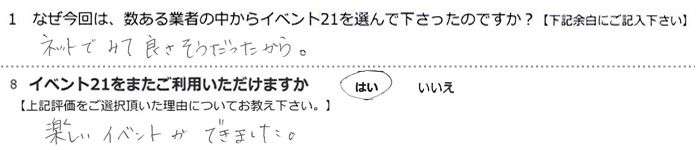 1 なぜ今回は、数ある業者の中からイベント21を選んで下さったのですか？【下記余白にご記入下さい】
ネットでみて良さそうだったから。
8 イベント21をまたご利用いただけますか はい いいえ
【上記評価をご選択頂いた理由についてお教え下さい。】
楽しいイベントができました。